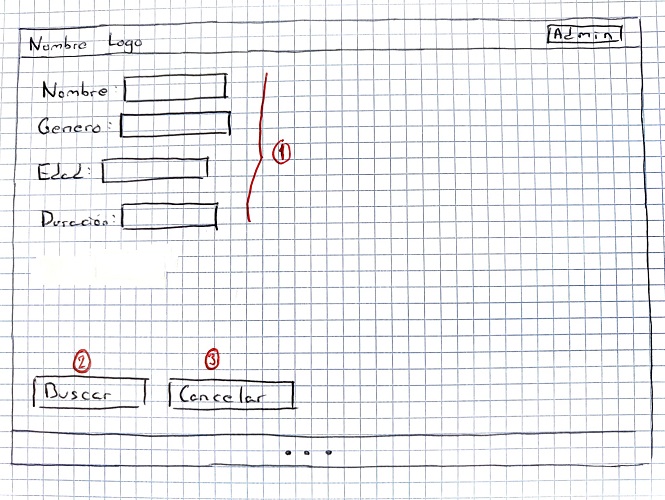 Nombre Logo
Admin
Nombre:
Genero:
Edad:
Duración:
1
2
3
Buscar
Cancelar
...